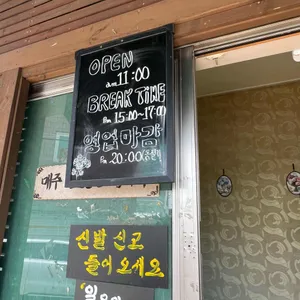 OPEN
am 11:00
BREAK TIME
Pm 15:00-17:00
영업마감
Pm 20:00
매주
신발 신고
들어오세요